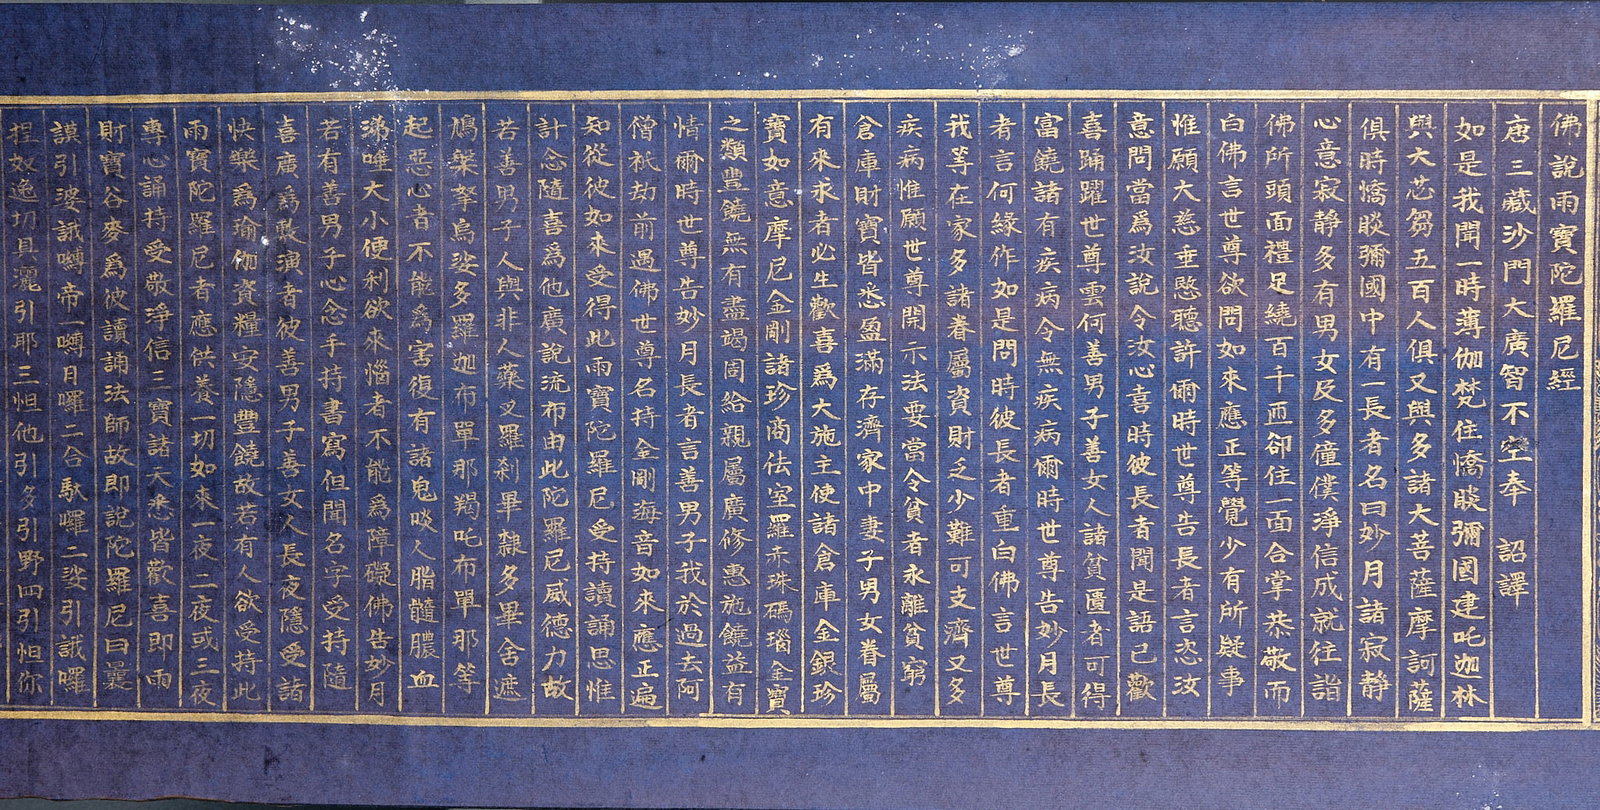 佛說雨寶陀羅尼經
唐三藏沙門大廣智不空奉　詔譯
如是我聞一時薄伽梵住憍睒彌國建吒迦林
與大苾芻五百人俱又與多諸大菩薩摩訶薩
俱時憍睒彌國中有一長者名曰妙月諸寂靜
心意寂靜多有男女及多僮僕淨信成就往詣
佛所頭面禮足繞百千匝卻住一面合掌恭敬而
白佛言世尊欲問如來應正等覺少有所疑事
惟願大慈垂愍聽許爾時世尊告長者言恣汝
意問當為汝說令汝心喜時彼長者聞是語已歡
喜踊躍世尊雲何善男子善女人諸貧匱者可得
富饒諸有疾病令無疾病爾時世尊告妙月長
者言何緣作如是問時彼長者重白佛言世尊
我等在家多諸眷屬資財乏少難可支濟又多
疾病惟願世尊開示法要當令貧者永離貧窮
倉庫財寶皆悉盈滿存濟家中妻子男女眷屬
有來求者必生歡喜為大施主使諸倉庫金銀珍
寶如意摩尼金剛諸珍商佉室羅赤珠碼瑙金寶
之類豐饒無有盡竭周給親屬廣修惠施饒益有
情爾時世尊告妙月長者言善男子我於過去阿
僧祇劫前遇佛世尊名持金剛海音如來應正遍
知從彼如來受得此雨寶陀羅尼受持讀誦思惟
計念隨喜為他廣說流布由此陀羅尼威德力故
若善男子人與非人藥叉羅剎畢隸多畢舍遮
鳩槃拏烏娑多羅迦布單那羯吒布單那等
起惡心者不能為害復有諸鬼啖人脂髓膿血
涕唾大小便利欲來惱者不能為障礙佛告妙月
若有善男子心念手持書寫但聞名字受持隨
喜廣為敷演者彼善男子善女人長夜隱受諸
快樂為瑜伽資糧安隱豐饒故若有人欲受持此
雨寶陀羅尼者應供養一切如來一夜二夜或三夜
專心誦持受敬淨信三寶諸天悉皆歡喜即雨
財寶谷麥為彼讀誦法師故即說陀羅尼曰曩
謨引婆誐嚩帝一嚩日囉二合馱囉二娑引誐囉
捏奴逸切具灑引耶三怛他引多引野四引怛你